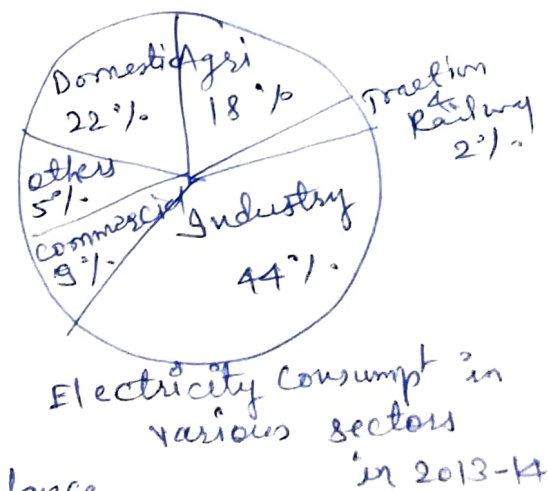 Domestic
22%.
Agri
18%
Traction
&
Railway
2%.
others
5%.
Commercial
9%.
Industry
44%.
Electricity Consumpt in
various sectors
in 2013-14
lance